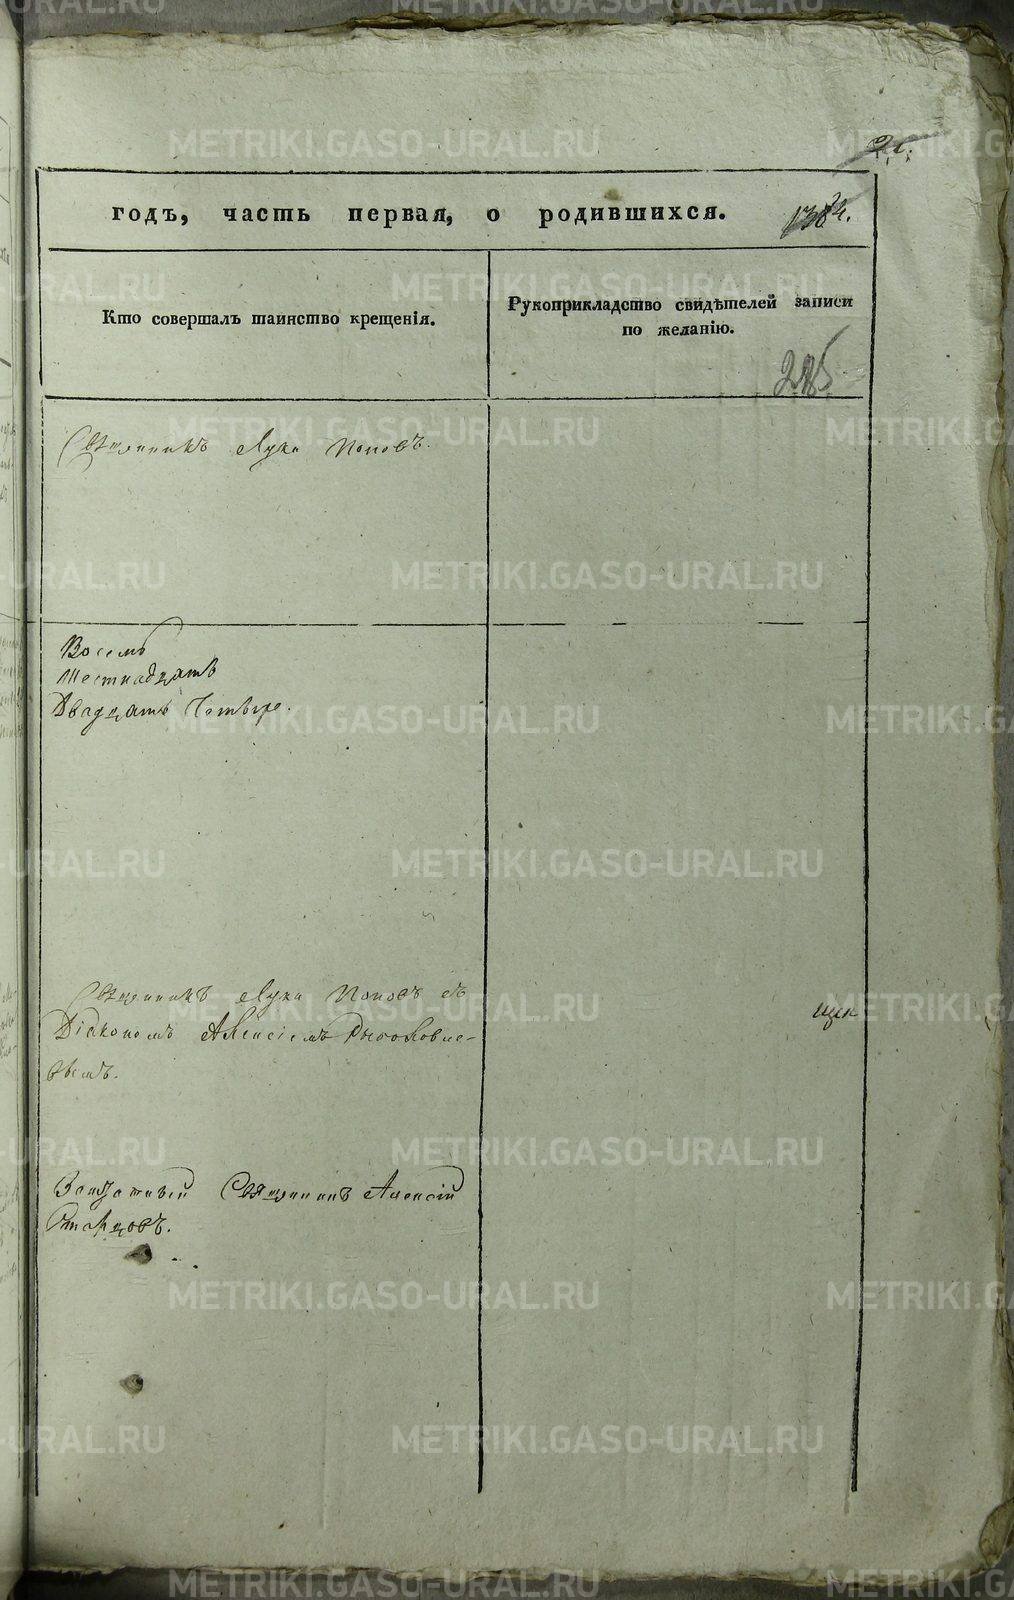 годъ, часть первая, о родившихся.
Кто совершалъ таинство крещенія.
Рукоприкладство свидѣтелей записи
по желанію.
Священникъ Лука Поповъ.
Восемь
Шестнадцать
Двадцать Четыре.
Священникъ Лука Поповъ съ
Діакономъ Алексіемъ
вымъ.
Священникъ Алексій
Старцовъ.
METRIKI.GASO-URAL.RU